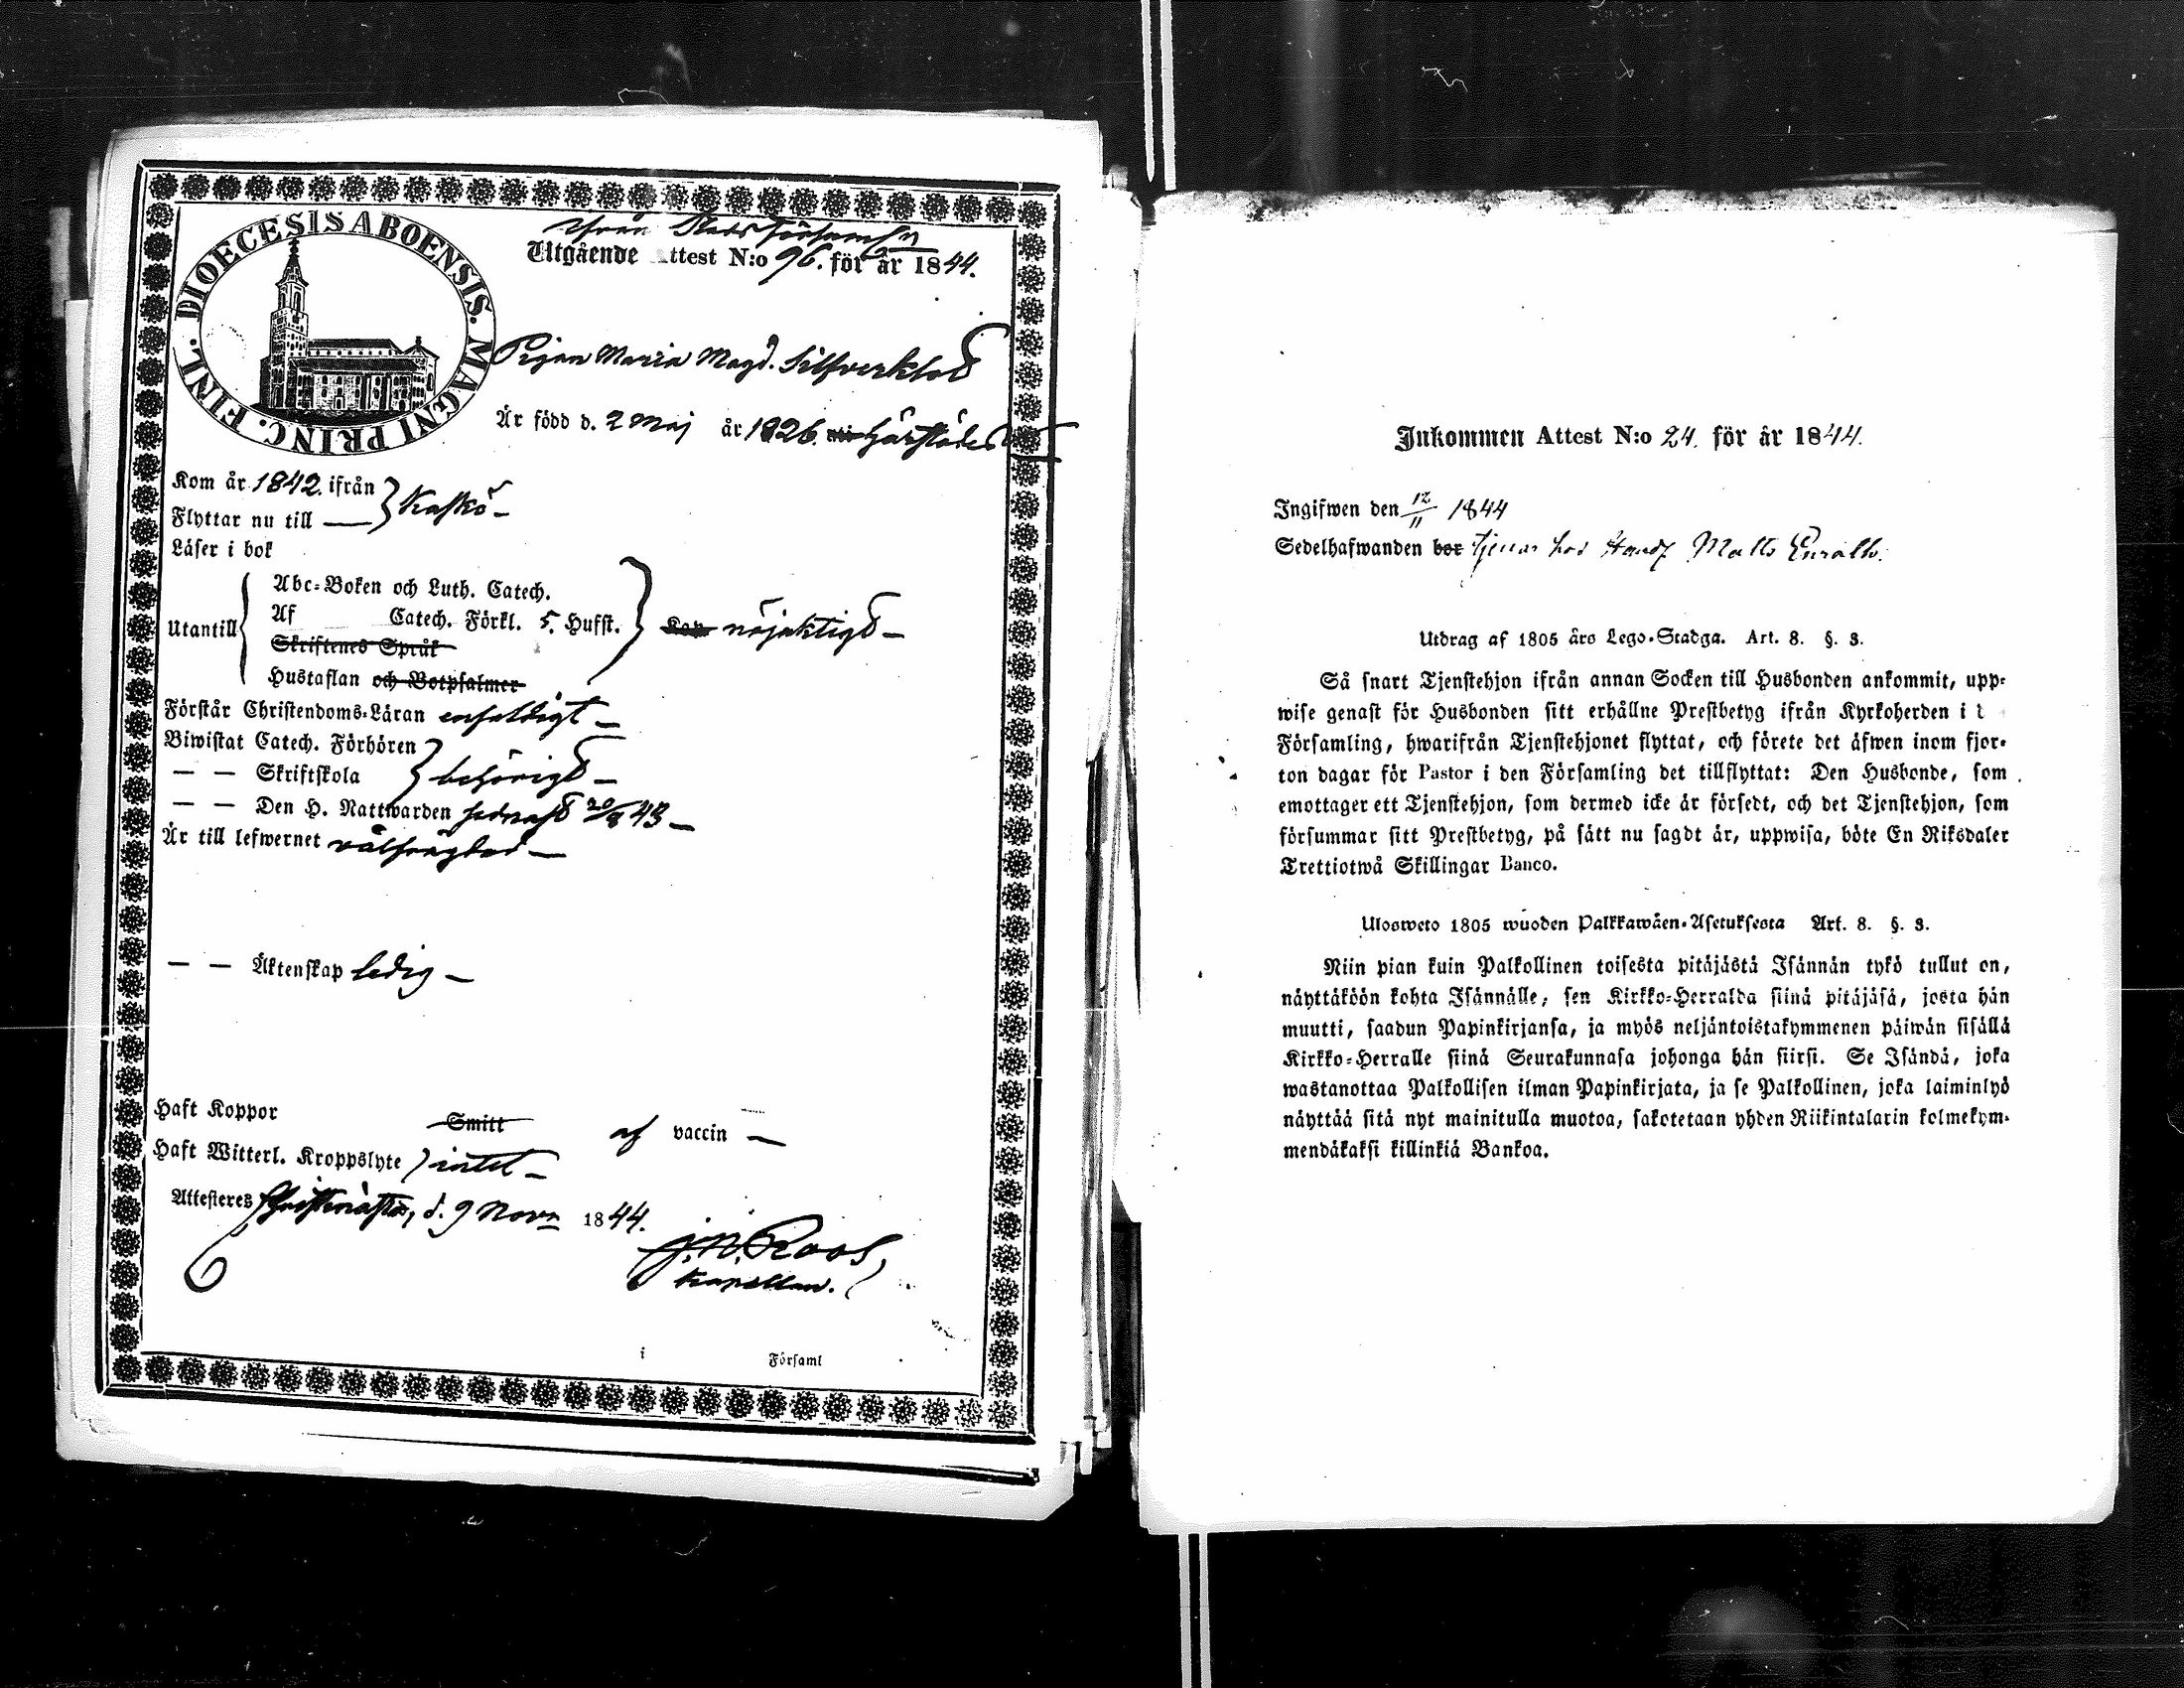 DIOECESIS ABOENSIS. MAGNI PRINC. FINL.
ifrån Stads församln
Utgående Attest N:o 96. för år 1844.
Pigan Maria Magd. Silfverklod
Är född d. 2 Maj år 1826. härstädes
Kom år 1842. ifrån
Flyttar nu till — } Kaskö —
Läser i bok
Utantill
Abc-Boken och Luth. Catech.
Af Catech. Förkl. 5. Hufst. nöjaktigt —
Skriftenes Språk
Hustaflan och Botpsalmer
Förstår Christendoms-Läran enfaldigt —
Biwistat Catech. Förhören
— — Skriftskola } behörigt —
— — Den H. Nattwarden sednast 20/8 43 —
Är till lefwernet välfrägdad —
— — Äktenskap ledig —
Haft Koppor Smitt af vaccin —
Haft Witterl. Kroppslyte intet —
Attesteres Christinæstad, d. 9 Novr 1844.
J. N. Roos,
Kapellan.
i Församl
Inkommen Attest N:o 24. för år 1844.
Ingifwen den 12/11 1844
Sedelhafwanden bor tjenar hos Handl Matts
Utdrag af 1805 års Lego-Stadga. Art. 8. §. 3.
Så snart Tjenstehjon ifrån annan Socken till Husbonden ankommit, upp-
wise genast för Husbonden sitt erhållne Prestbetyg ifrån Kyrkoherden i
Församling, hwarifrån Tjenstehjonet flyttat, och förete det äfwen inom fjor-
ton dagar för Pastor i den Församling det tillflyttat: Den Husbonde, som
emottager ett Tjenstehjon, som dermed icke är försedt, och det Tjenstehjon, som
försummar sitt Prestbetyg, på sätt nu sagdt är, uppwisa, böte En Riksdaler
Trettiotwå Skillingar Banco.
Ulosweto 1805 wuoden Palkkawäen-Asetuksesta Art. 8. §. 3.
Niin pian kuin Palkollinen toisesta pitäjästä Isännän tykö tullut on,
näyttäköön kohta Isännälle, sen Kirkko-Herralda siinä pitäjäsä, josta hän
muutti, saadun Papinkirjansa, ja myös neljäntoistakymmenen päiwän sisällä
Kirkko-Herralle siinä Seurakunnasa johonga hän siirsi. Se Isändä, joka
wastanottaa Palkollisen ilman Papinkirjata, ja se Palkollinen, joka laiminlyö
näyttää sitä nyt mainitulla muotoa, sakotetaan yhden Riikintalarin kolmekym-
mendäkaksi killinkiä Bankoa.